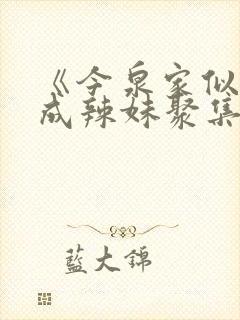 《今泉家似
成辣妹聚集
藍大錦